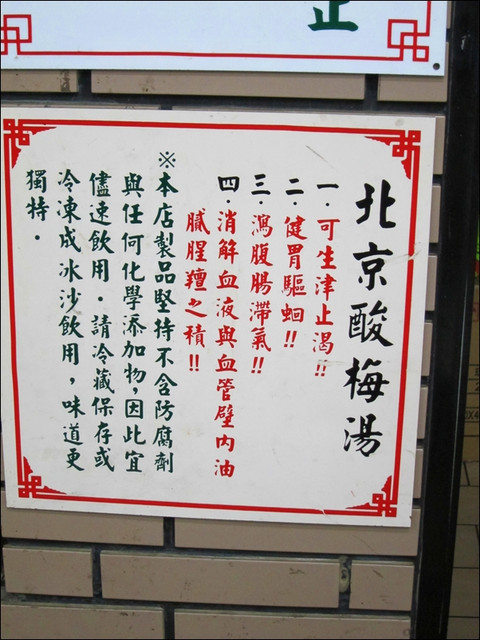 止
北京酸梅湯
一．可生津止渴!!
二．健胃驅蛔!!
三．瀉腹腸滯氣!!
四．消解血液與血管壁內油
膩腥羶之積!!
※本店製品堅持不含防腐劑
與任何化學添加物，因此宜
儘速飲用．請冷藏保存或
冷凍成冰沙飲用，味道更
獨特．